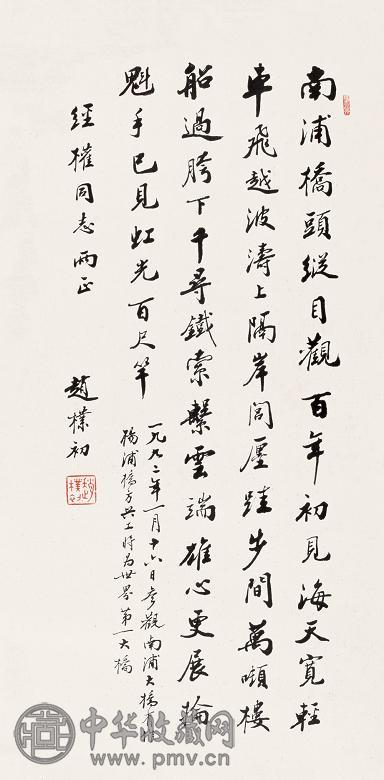 南浦橋頭縱目觀百年初見海天寬輕
車飛越波濤上隔岸閭廛跬步間萬噸樓
船過胯下千尋鐵索繫雲端雄心更展掄
魁手已見虹光百尺竿
一九九二年一月十六日參觀南浦大橋有
楊浦橋方興工將為世界第一大橋
經權同志兩正
趙樸初
中华收藏网
http://www.pmv.cn/